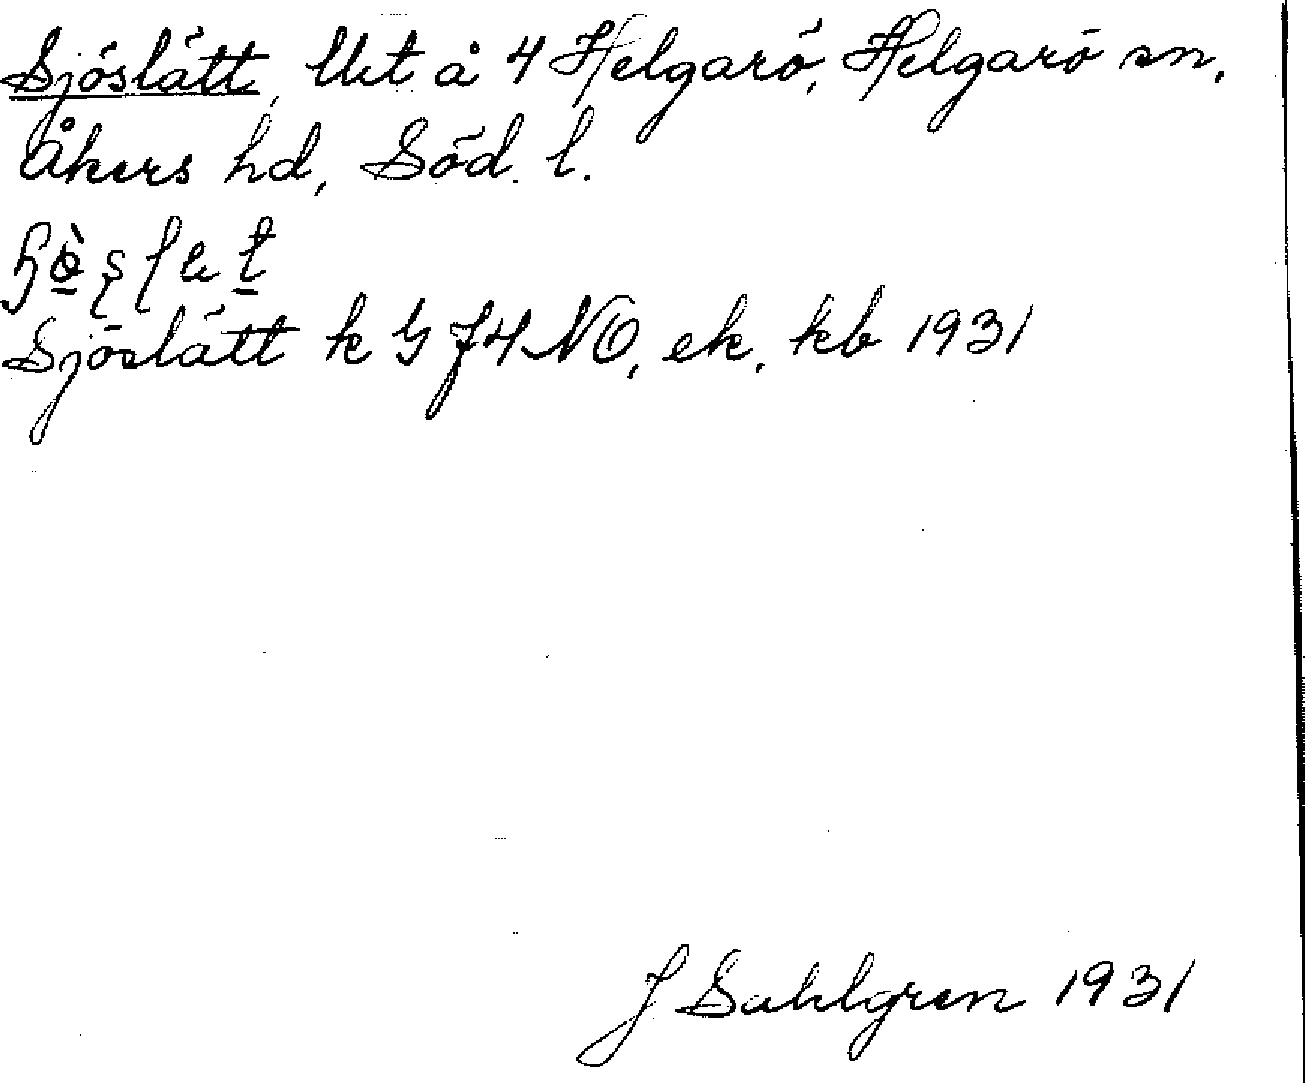 Sjöslätt, lht å 4 Helgarö, Helgarö sn,
Åkers hd, Söd. l.
Sjöslätt k G J4 NO, ek. kb 1931
J Sahlgren 1931